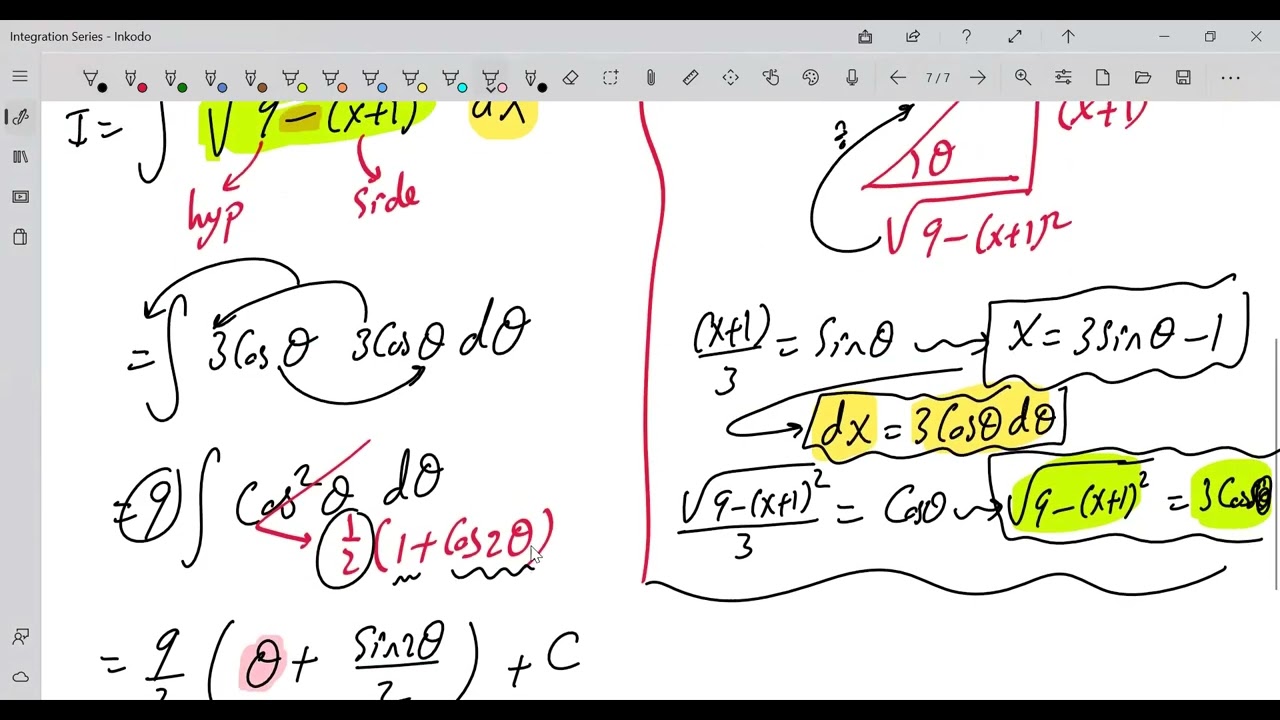 Integration Series - Inkodo
7 / 7
I = ∫ √9 - (x+1) dx
hyp
side
= ∫ 3Cosθ 3Cosθ dθ
= 9 ∫ Cos²θ dθ
1/2 (1 + Cos2θ)
= 9/2 (θ + Sin2θ/2) + C
?
θ
(x+1)
√9-(x+1)²
(x+1)/3 = Sinθ
x = 3sinθ - 1
dx = 3Cosθ dθ
√9-(x+1)²/3 = Cosθ
√9-(x+1)² = 3Cosθ